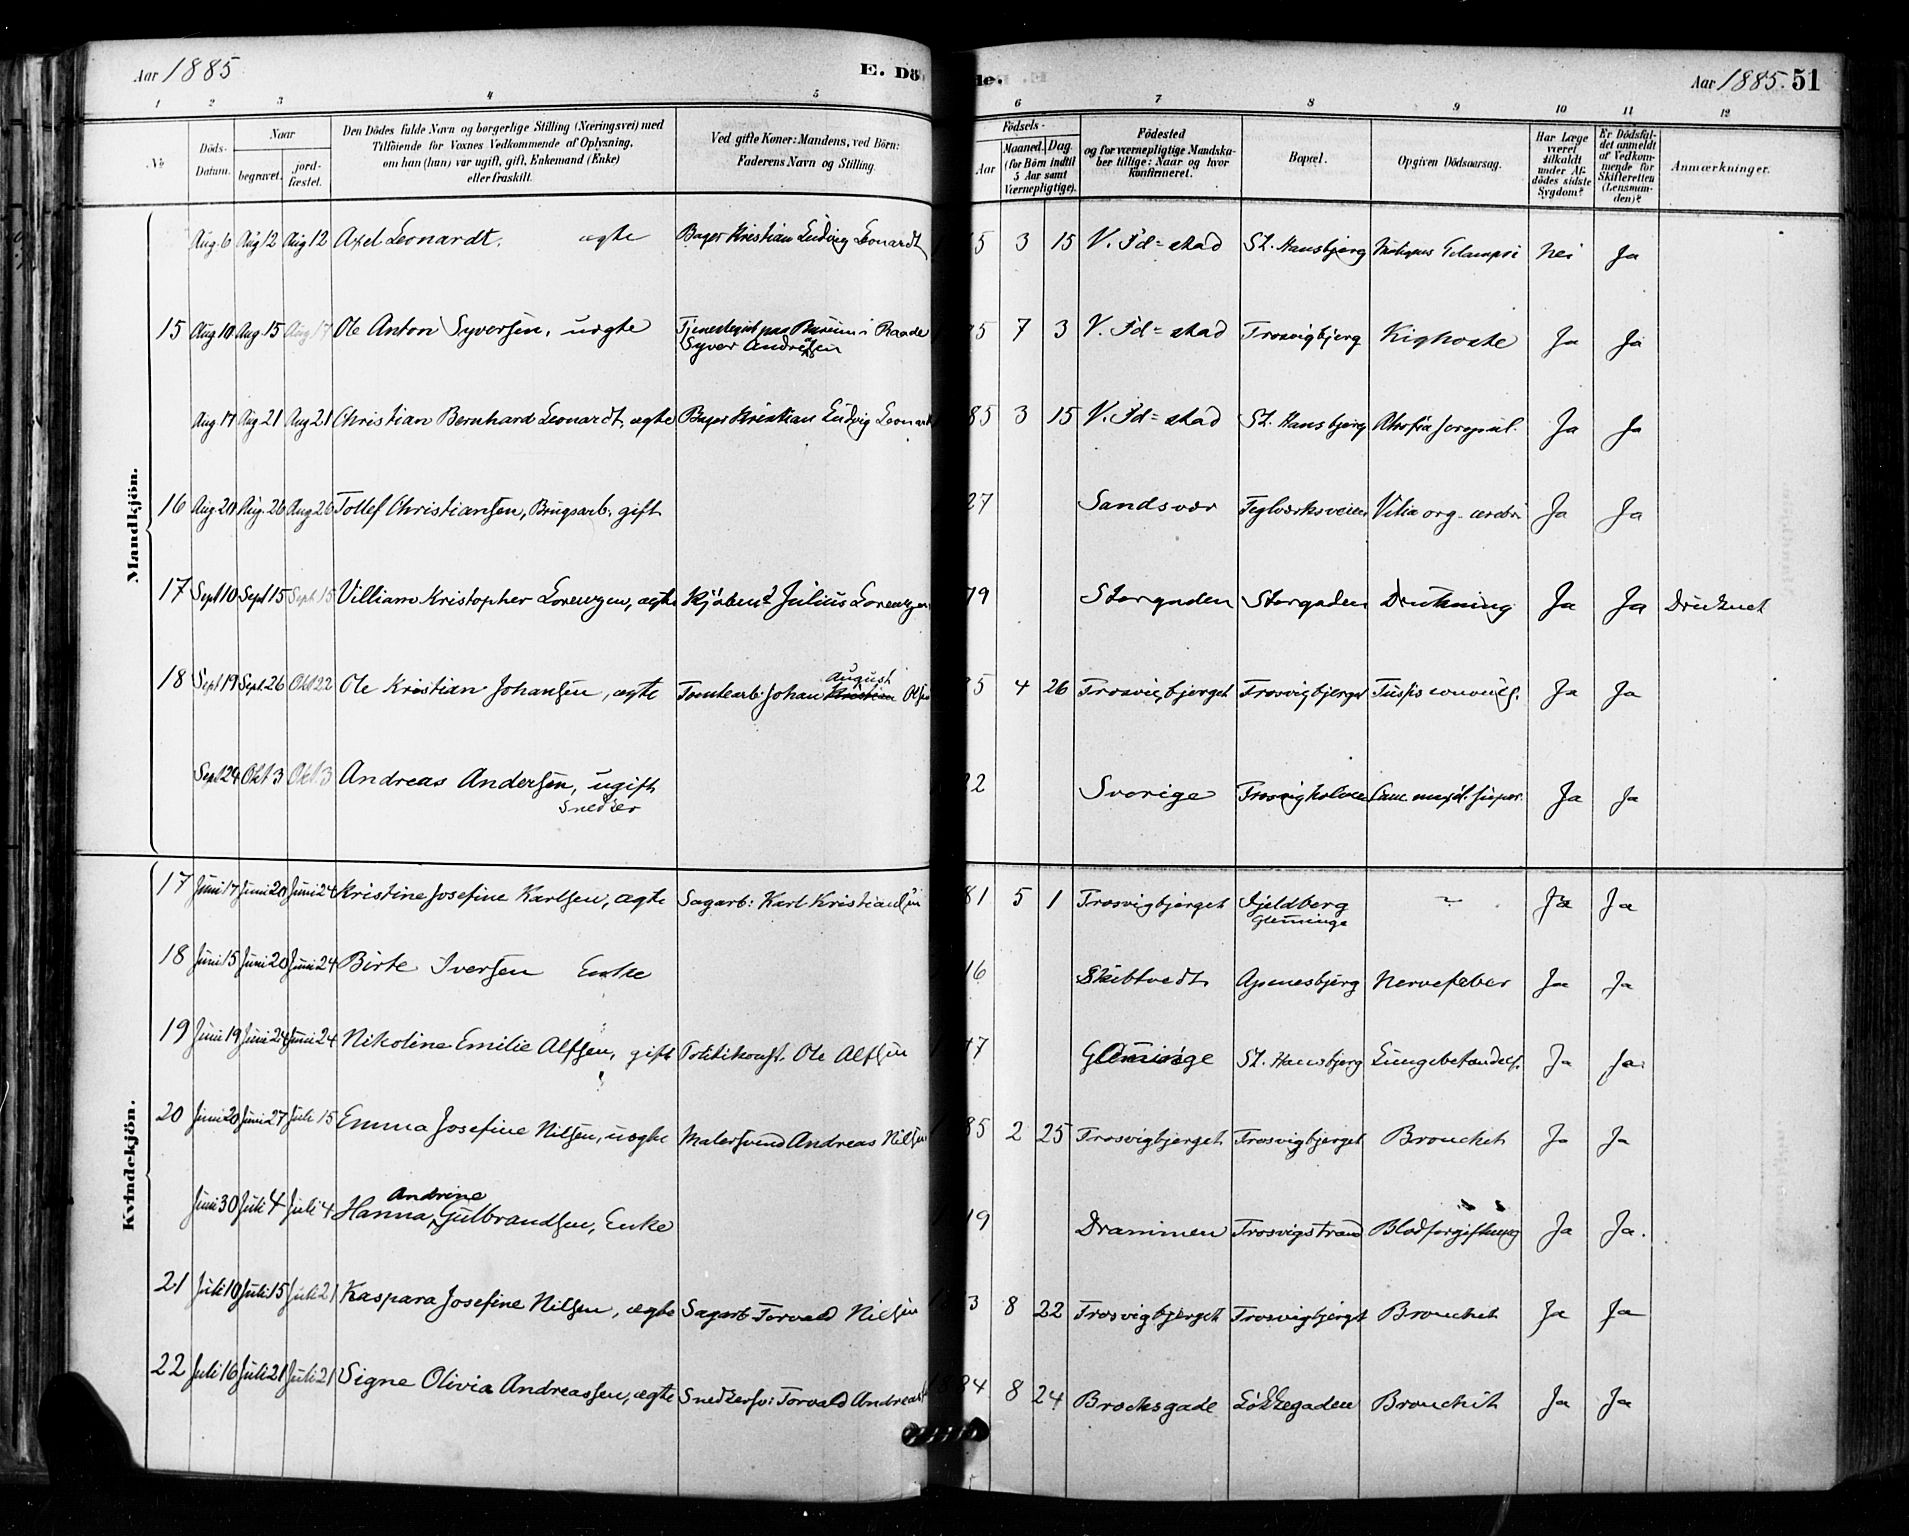 Aar 1885
E. Dö.
de.
Aar 1885. 51
1 2 3 4 5 6 7 8 9 10 11 12
No
Döds-Datum.
Naar
begravet.
jord-fæstet.
Den Dödes fulde Navn og borgerlige Stilling (Næringsvei) med
Tilföiende for Voxnes Vedkommende af Oplysning,
om han (hun) var ugift, gift, Enkemand (Enke)
eller fraskilt.
Ved gifte Koner: Mandens, ved Börn:
Faderens Navn og Stilling.
Födsels-
Aar
Maaned.
Dag
(for Börn indtil
5 Aar samt
Værnepligtige).
Födested
og for værnepligtige Mandska-
ber tillige: Naar og hvor
konfirmeret.
Bopæl.
Opgiven Dödsaarsag.
Har Læge
været
tilkaldt
under Af-
dödes sidste
Sygdom?
Er Dödsfal-
det anmeldt
af Vedkom-
mende for
Skifteretten
(Lensman-
den)?
Anmærkninger.
Mandkjön.
Aug. 6 Aug 12 Aug 12 Axel Leonardt, ægte Bager Kristian Ludvig Leonardt 5 3 15 V. Fd=stad St. Hansbjerg Nei Ja
15 Aug 10 Aug. 15 Aug 17 Ole Anton Syversen, uægte Tjenestegut paa i Raade
Syver Andresen 5 7 3 V. Fd=stad Trosvigbjerg Kighoste Ja Ja
Aug. 17 Aug 21 Aug 21 Christian Bernhard Leonardt, ægte Bager Kristian Ludvig Leonardt 85 3 15 V. Fd=stad St. Hansbjerg Ja Ja
16 Aug 20 Aug. 26 Aug 26 Tollef Christiansen, Brugsarb. gift 27 Sandsvær Teglværksveien Vitia org. cerebri Ja Ja
17 Sept 10 Sept 15 Sept 15 Villiam Kristopher Lorenzen, ægte Kjöbmd Julius Lorenzen 79 Storgaden Storgaden Drukning Ja Ja Druknet
18 Sept 19 Sept. 26 Okt 22 Ole Kristian Johansen, ægte Tomtearb. Johan Kristian August Olsen 5 4 26 Trosvigbjerget Trosvigbjerget Tussis convuls. Ja Ja
Sept 29 Okt 3 Okt. 3 Andreas Andersen, ugift
Snedker 2 Sverige Ja Ja
Kvindekjön.
17 Juni 17 Juni 20 Juni 24 Kristine Josefine Karlsen, ægte Sagarb: Karl Kristiansen 81 5 1 Trosvigbjerget Fjeldberg
Glemminge ~ Ja Ja
18 Juni 15 Juni 20 Juni 24 Birte Iversen Enke 16 Skibtvedt Apenesbjerg Nervefeber Ja Ja
19 Juni 19 Juni 24 Juni 24 Nikoline Emilie Alfsen, gift Politikonst. Ole Alfsen 47 Glemminge St. Hansbjerg Lungebetændels. Ja Ja.
20 Juni 20 Juni 27 Juli 15 Emma Josefine Nilsen, uægte Malersvend Andreas Nilsen 85 2 25 Trosvigbjerget Trosvigbjerget Bronchit Ja Ja
Juni 30 Juli 4 Juli 4 Hanna Andrine Gulbrandsen, Enke 19 Drammen Trosvigstrand Blodforgiftning Ja Ja.
21 Juli 10 Juli 15 Juli 21 Kaspara Josefine Nilsen, ægte Sagarb. Torvald Nilsen 3 8 22 Trosvigbjerget Trosvigbjerget Bronchit Ja Ja
22 Juli 16 Juli 21 Juli 21 Signe Olivia Andreassen, ægte Snedkersv: Torvald Andreas 84 8 24 Brochsgade Løkkegaden Bronchit Ja Ja